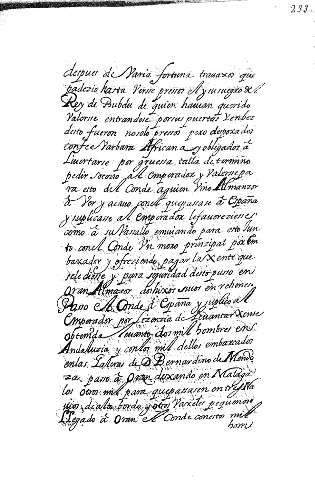 233
despues de Varia fortuna trauaxos que
padezio hasta Verse presos el y su suegro del
Rey de Dubdu de quien hauian querido
Valerse entrandose por sus puertas Y enbez
desto fueron no solo presos pero despoxados
con fee barbara Africana y obligados a
Libertarse por gruesa talla determino
pedir socorro al emperador y Valerse pa
ra esto del Conde a quien Vino Almanzor
a Ver y acauo con el que pasase a España
y suplicase al emperador le fauoreciese
como a su Vasallo enuiando para esto Jun
to con el Conde Un moro prinzipal por em
baxador y ofreciendo pagar la Xente que
se le diese y para siguridad desto puso en
Oran Almanzor dos hixos suios en rehenes
Paso el Conde a España y suplico al
Emperador por lizencia de leuantar Xente
obtenida leuanto dos mil hombres en
Andaluzia y con los mil dellos embarcados
en las Galeras de D Bernardino de Mendo
za paso a Oran dexando en Malaga
los otros mil para que pasasen en tres Na
uios de alto bordo y otros Vaxeles pequeños
Llegado a Oran el Conde con estos mil
hom